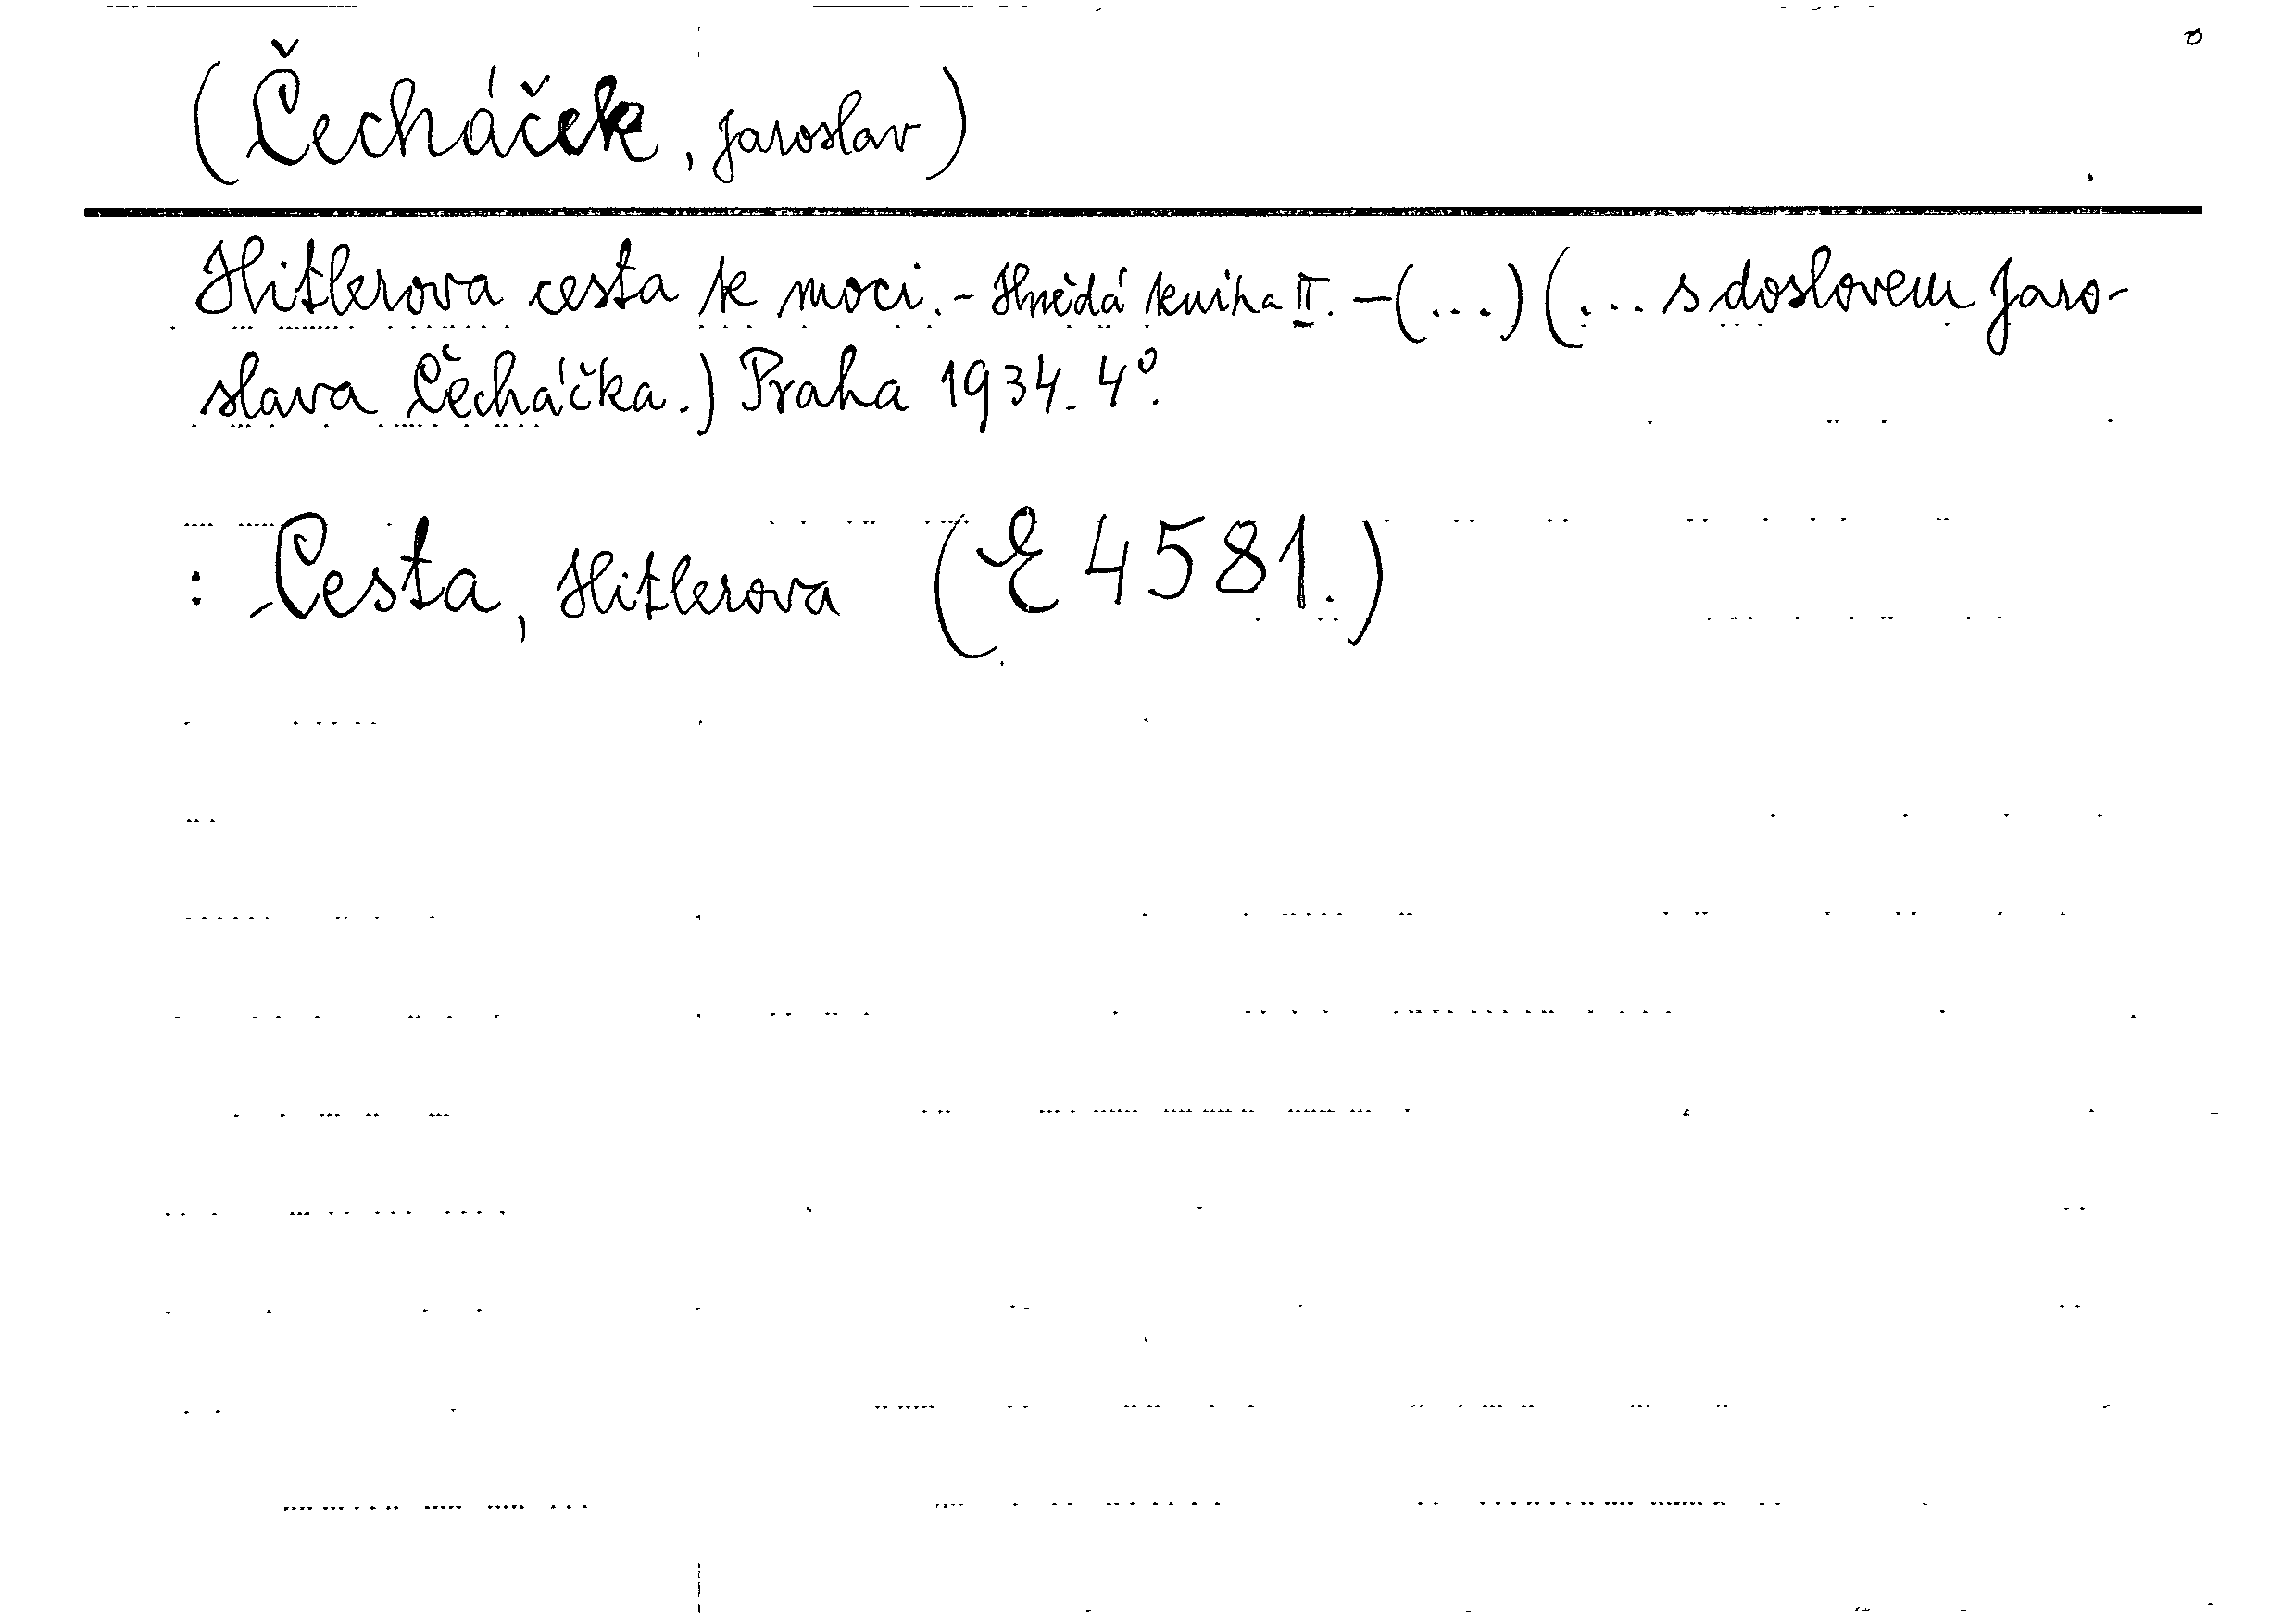 (Čecháček, Jaroslav)
Hitlerova cesta k moci. - Hnědá kniha II. - (...) (... s doslovem Jaro-
slava Čecháčka.) Praha 1934. 4°.
: Cesta, Hitlerova (E 4581.)